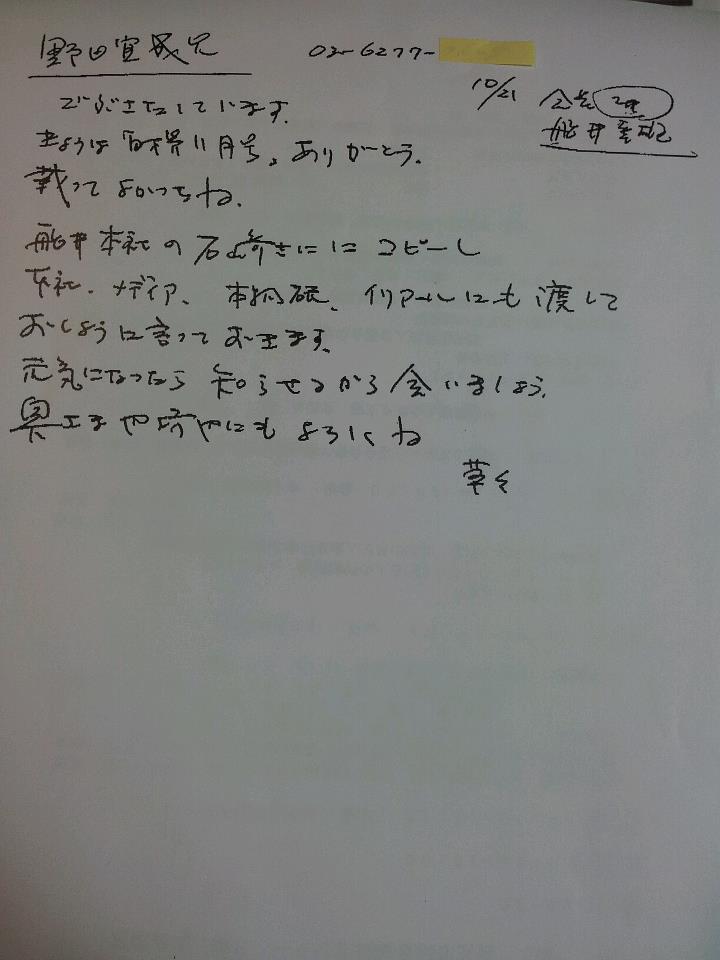 野田宜成兄
02-6277-
10/21
船井幸雄
ごぶさたしています。
きょうは 11月号、ありがとう。
載ってよかったね。
船井本社の石 コピーし
本社、メディア、本物研、 にも渡して
おくように言っておきます。
元気になったら知らせるから会いましょう。
奥さま にもよろしくね
草々